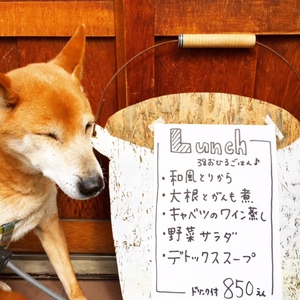 Lunch
3色おひるごはん♪
・和風とりから
・大根とがんも煮
・キャベツのワイン蒸し
・野菜サラダ
・デトックススープ
ドリンク付 850えん